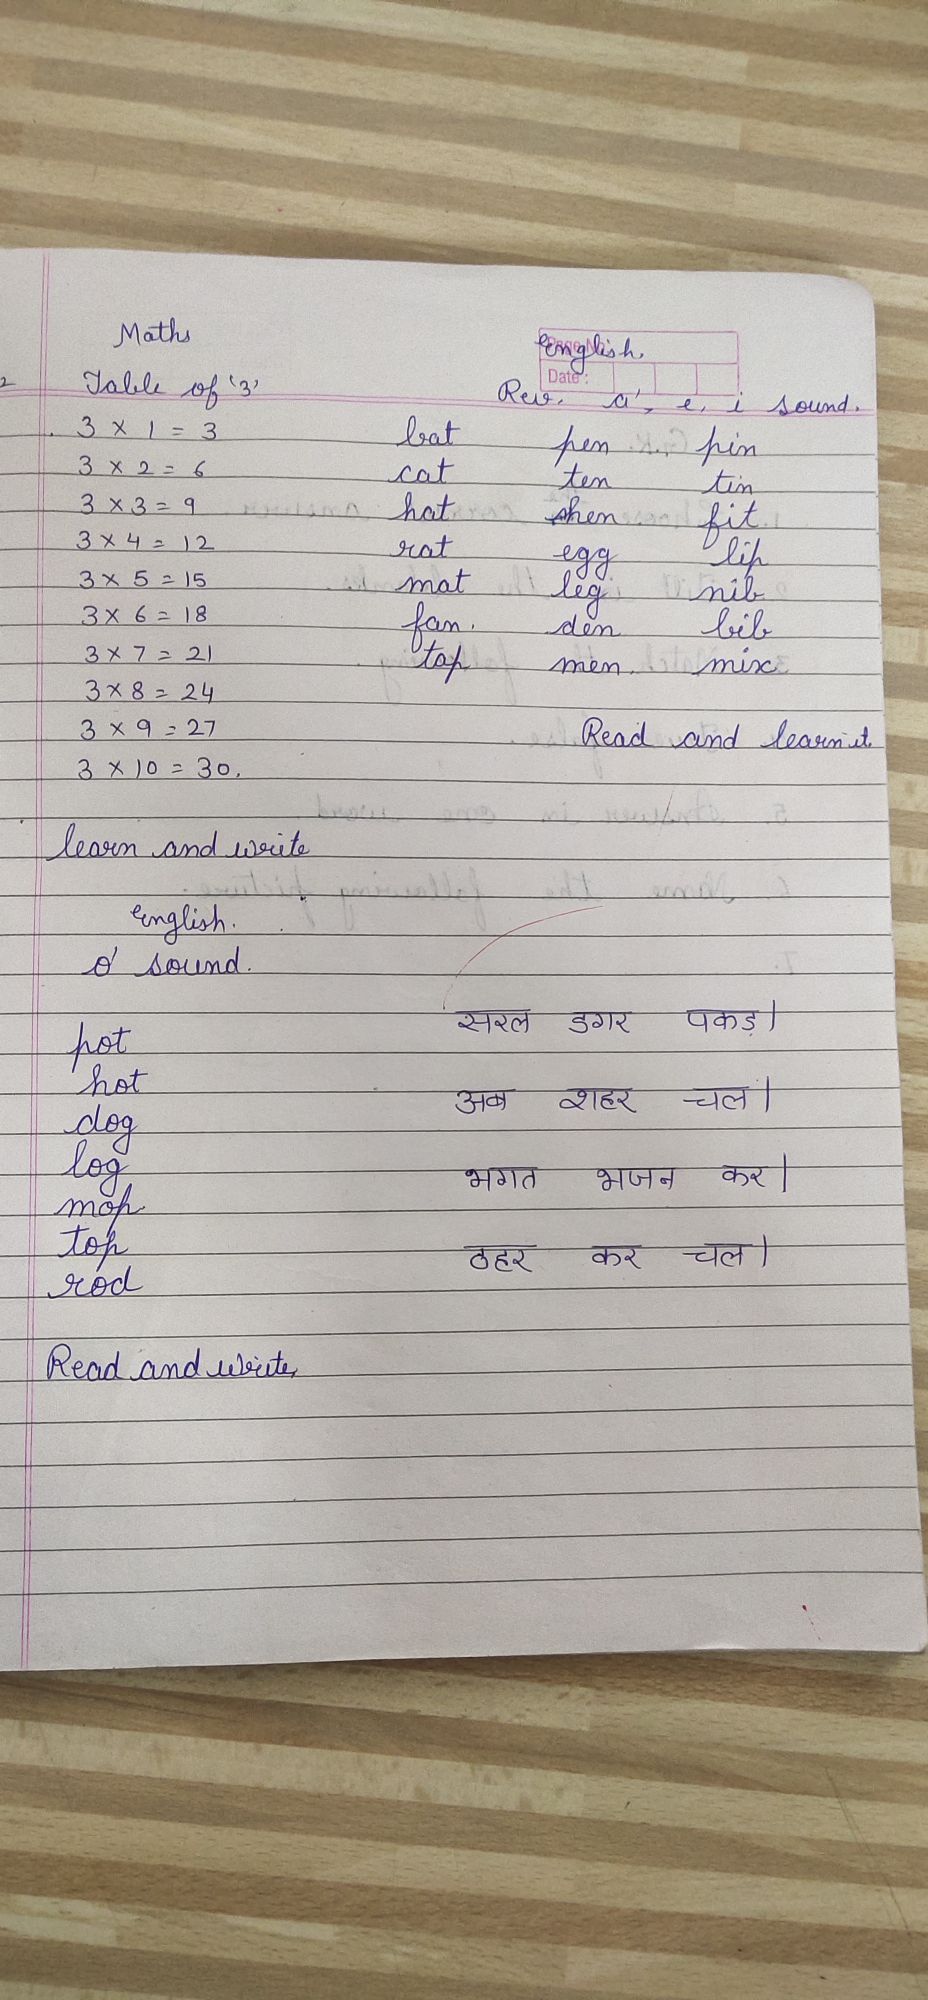 Maths
Table of '3'
3 × 1 = 3
3 × 2 = 6
3 × 3 = 9
3 × 4 = 12
3 × 5 = 15
3 × 6 = 18
3 × 7 = 21
3 × 8 = 24
3 × 9 = 27
3 × 10 = 30.
learn and write
English.
Date :
Rev. a', e, i sound.
bat pen pin
cat ten tin
hat hen fit
rat egg lip
mat leg nib
fan. den bib
tap men. mix
Read and learn it.
English.
o' sound.
pot
hot
dog
log
mop
top
rod
Read and write,
सरल डगर पकड़।
अब शहर चल।
भगत भजन कर।
ठहर कर चल।